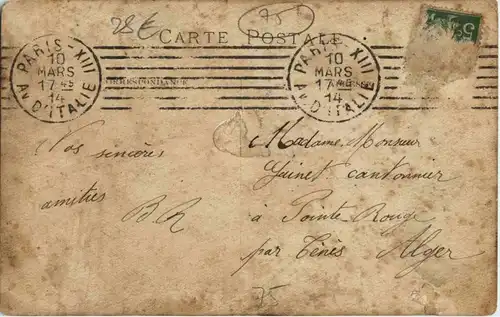 28€
75
CARTE POSTALE
CORRESPONDANCE
PARIS-XIII
10
MARS
17 45
14
Av. D'ITALIE
PARIS-XIII
10
MARS
17 45
14
Av. D'ITALIE
5
Vos sincères
amitiés
BR
Madame, Monsieur
Guinet cantonnier
à Pointe Rouge
par Ténès Alger
75